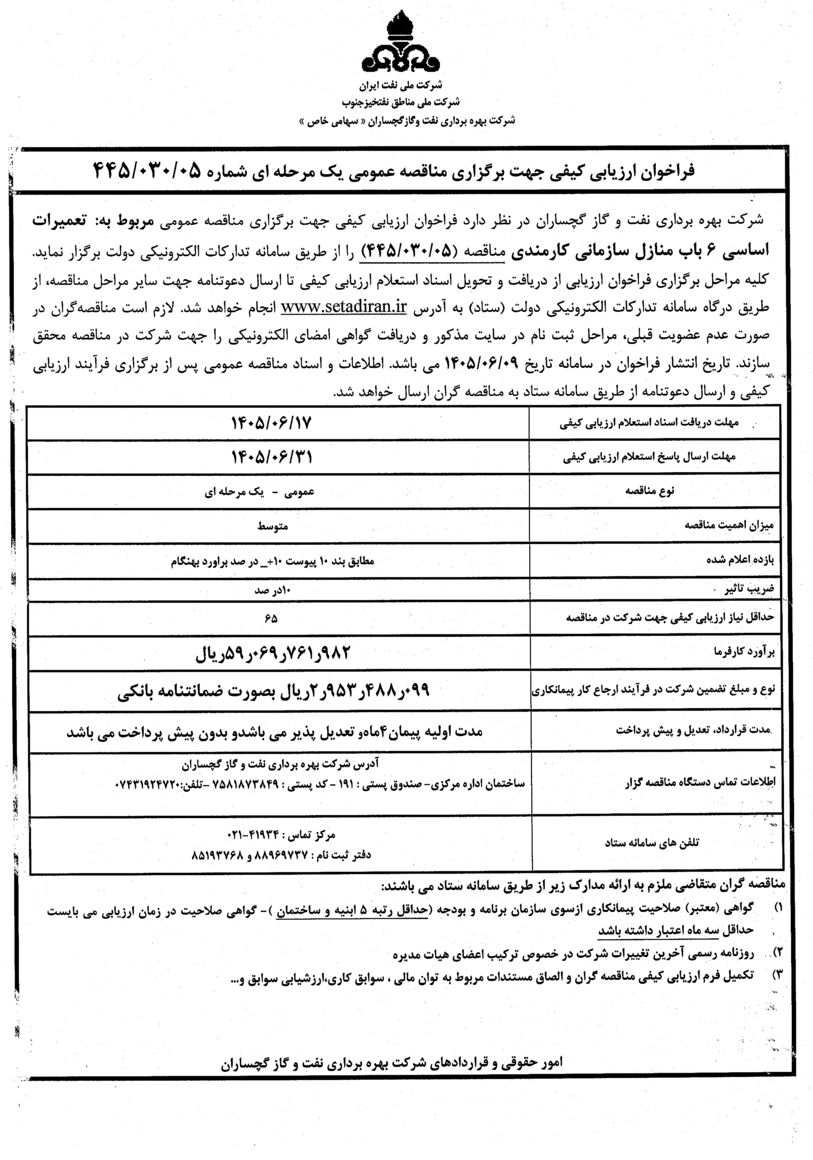 شرکت ملی نفت ایران
شرکت ملی مناطق نفتخیزجنوب
شرکت بهره برداری نفت وگازگچساران « سهامی خاص »
فراخوان ارزیابی کیفی جهت برگزاری مناقصه عمومی یک مرحله ای شماره ۴۴۵/۰۳۰/۰۵
شرکت بهره برداری نفت و گاز گچساران در نظر دارد فراخوان ارزیابی کیفی جهت برگزاری مناقصه عمومی مربوط به: تعمیرات
اساسی ۶ باب منازل سازمانی کارمندی مناقصه (۴۴۵/۰۳۰/۰۵) را از طریق سامانه تدارکات الکترونیکی دولت برگزار نماید.
کلیه مراحل برگزاری فراخوان ارزیابی از دریافت و تحویل اسناد استعلام ارزیابی کیفی تا ارسال دعوتنامه جهت سایر مراحل مناقصه، از
طریق درگاه سامانه تدارکات الکترونیکی دولت (ستاد) به آدرس www.setadiran.ir انجام خواهد شد. لازم است مناقصه‌گران در
صورت عدم عضویت قبلی، مراحل ثبت نام در سایت مذکور و دریافت گواهی امضای الکترونیکی را جهت شرکت در مناقصه محقق
سازند. تاریخ انتشار فراخوان در سامانه تاریخ ۱۴۰۵/۰۶/۰۹ می باشد. اطلاعات و اسناد مناقصه عمومی پس از برگزاری فرآیند ارزیابی
کیفی و ارسال دعوتنامه از طریق سامانه ستاد به مناقصه گران ارسال خواهد شد.
مهلت دریافت اسناد استعلام ارزیابی کیفی ۱۴۰۵/۰۶/۱۷
مهلت ارسال پاسخ استعلام ارزیابی کیفی ۱۴۰۵/۰۶/۳۱
نوع مناقصه عمومی - یک مرحله ای
میزان اهمیت مناقصه متوسط
بازده اعلام شده مطابق بند ۱۰ پیوست ۱۰+_ در صد براورد بهنگام
ضریب تاثیر ۱۰در صد
حداقل نیاز ارزیابی کیفی جهت شرکت در مناقصه ۶۵
برآورد کارفرما ۵۹٫۰۶۹٫۷۶۱٫۹۸۲ریال
نوع و مبلغ تضمین شرکت در فرآیند ارجاع کار پیمانکاری ۲٫۹۵۳٫۴۸۸٫۰۹۹ریال بصورت ضمانتنامه بانکی
مدت قرارداد، تعدیل و پیش پرداخت مدت اولیه پیمان۴ماه‌و تعدیل پذیر می باشدو بدون پیش پرداخت می باشد
آدرس شرکت بهره برداری نفت و گاز گچساران
اطلاعات تماس دستگاه مناقصه گزار ساختمان اداره مرکزی- صندوق پستی : ۱۹۱ - کد پستی : ۷۵۸۱۸۷۳۸۴۹ -تلفن:۰۷۴۳۱۹۲۴۷۲۰
تلفن های سامانه ستاد مرکز تماس : ۴۱۹۳۴-۰۲۱
دفتر ثبت نام : ۸۸۹۶۹۷۳۷ و ۸۵۱۹۳۷۶۸
مناقصه گران متقاضی ملزم به ارائه مدارک زیر از طریق سامانه ستاد می باشند:
۱) گواهی (معتبر) صلاحیت پیمانکاری ازسوی سازمان برنامه و بودجه (حداقل رتبه ۵ ابنیه و ساختمان )- گواهی صلاحیت در زمان ارزیابی می بایست
حداقل سه ماه اعتبار داشته باشد
۲) روزنامه رسمی آخرین تغییرات شرکت در خصوص ترکیب اعضای هیات مدیره
۳) تکمیل فرم ارزیابی کیفی مناقصه گران و الصاق مستندات مربوط به توان مالی ، سوابق کاری،ارزشیابی سوابق و...
امور حقوقی و قراردادهای شرکت بهره برداری نفت و گاز گچساران